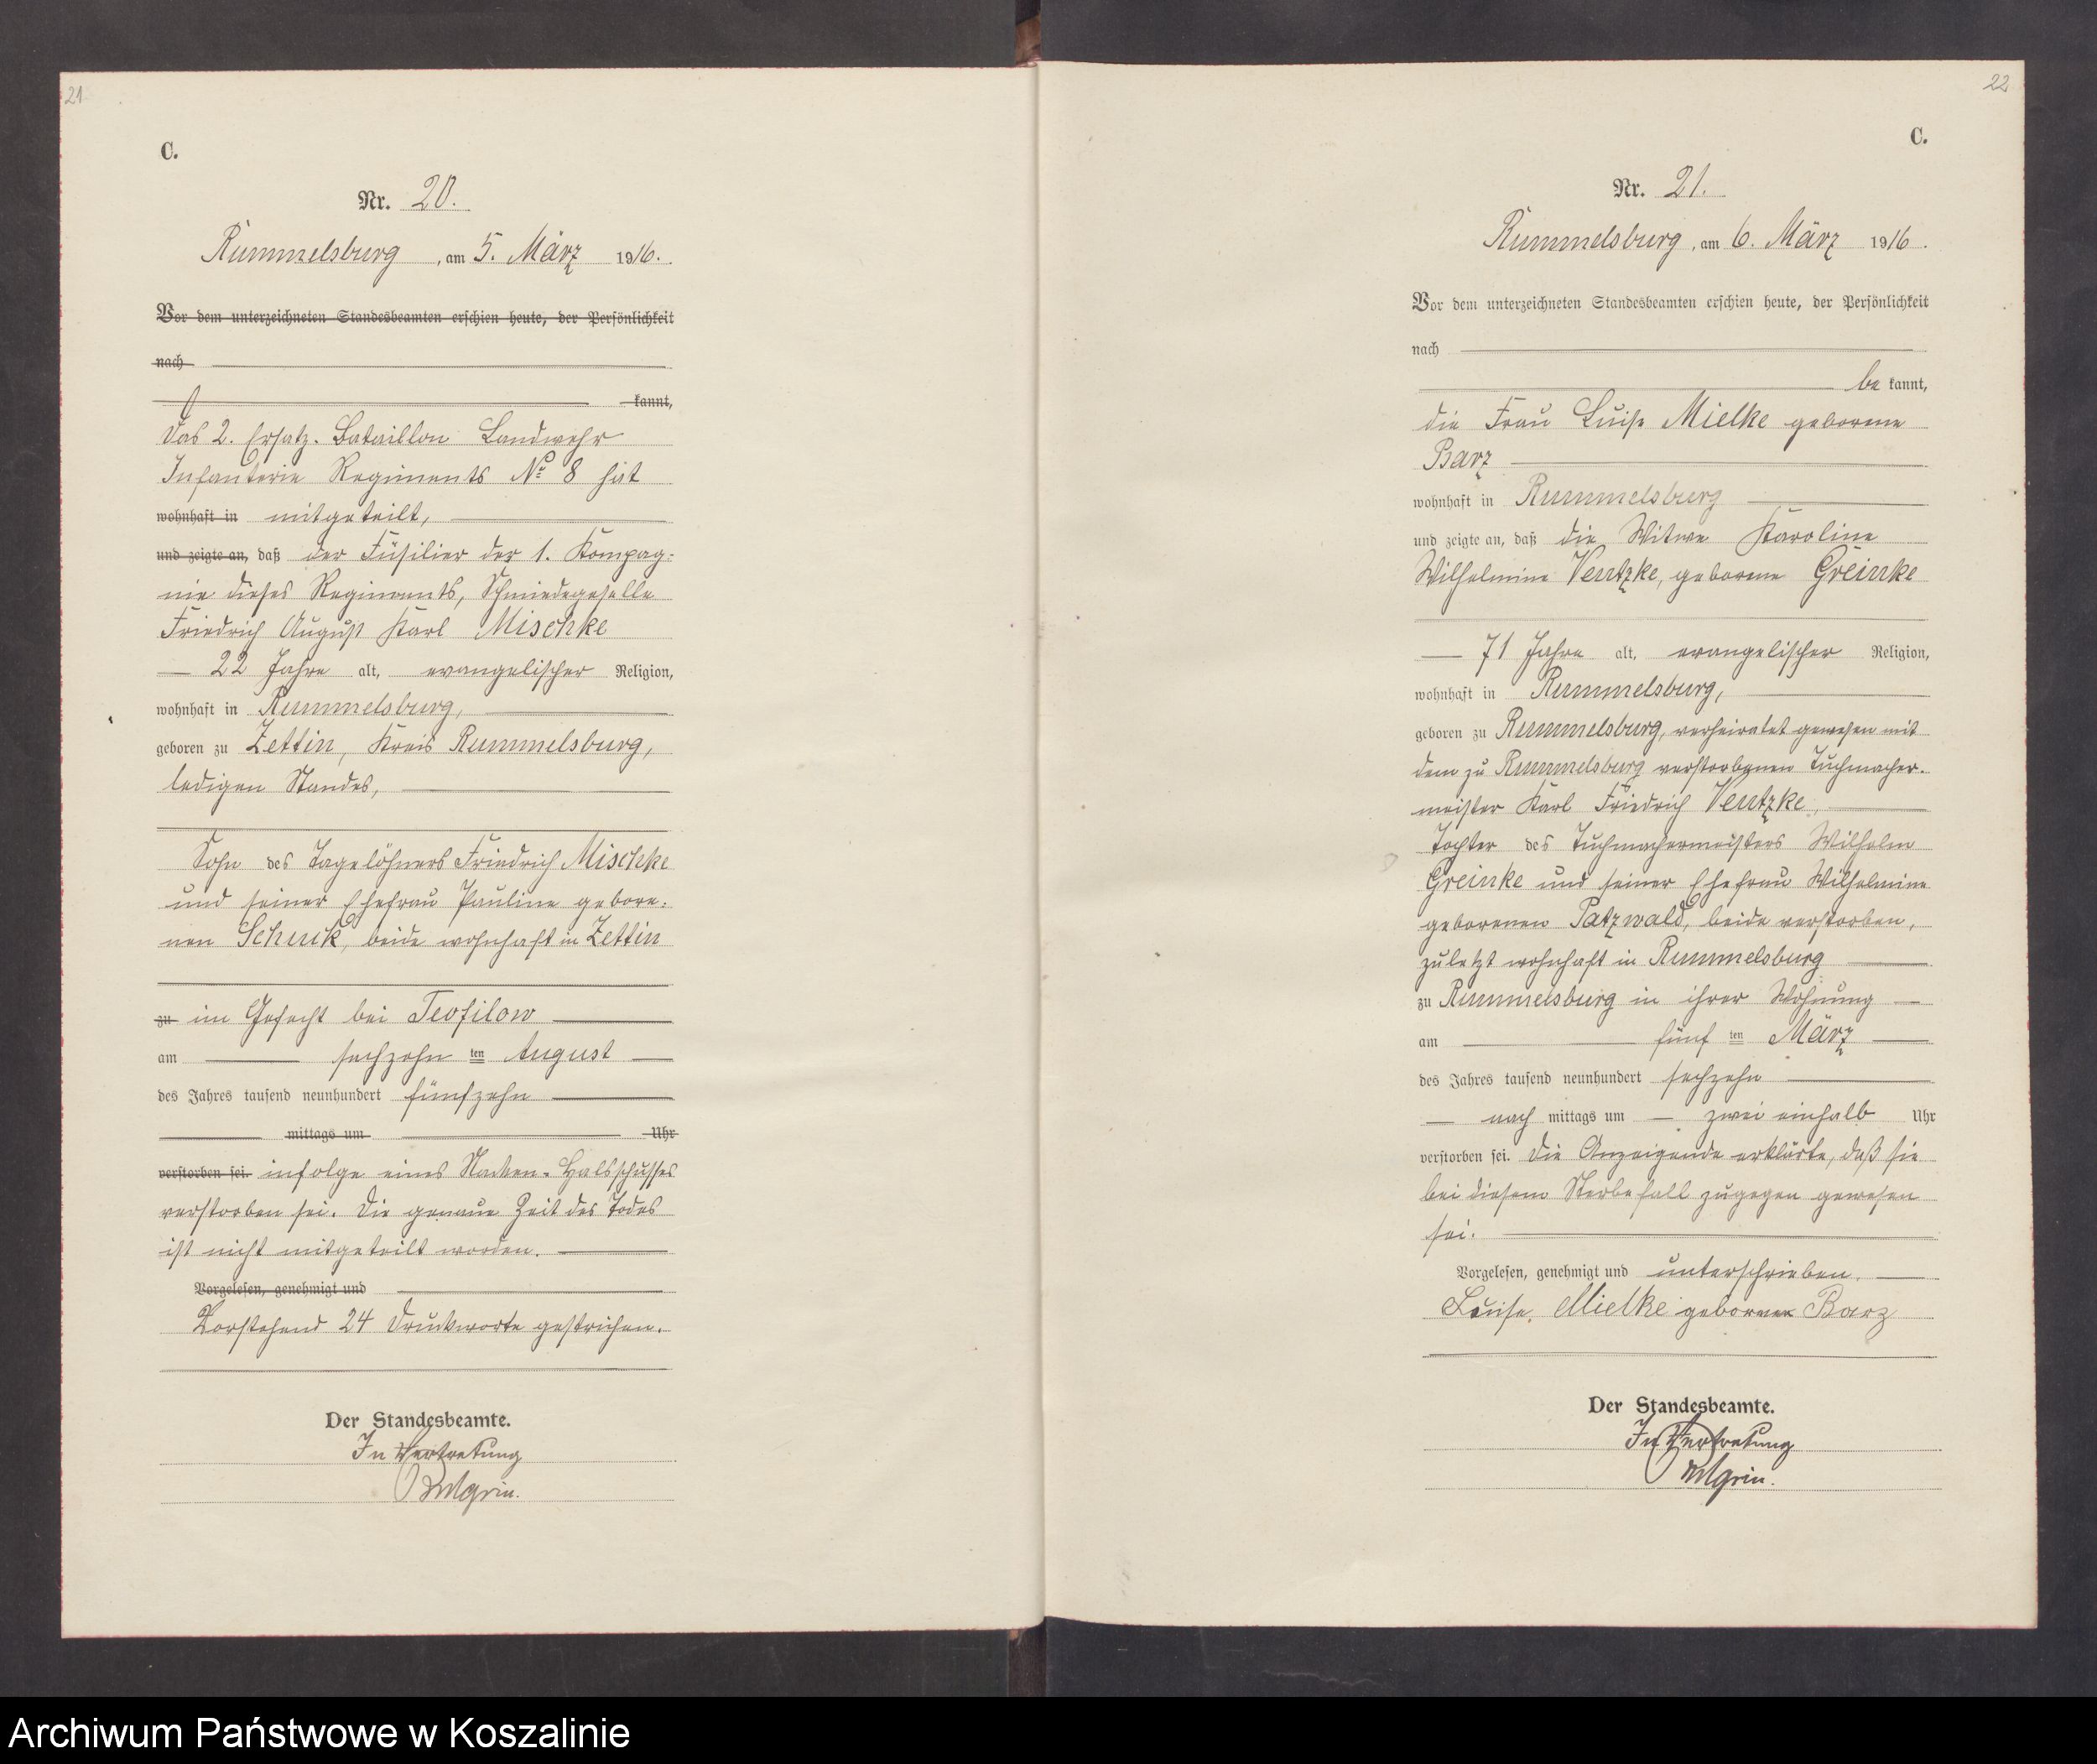 21
C.
Nr. 20.
Rummelsburg, am 5. März 1916.
Vor dem unterzeichneten Standesbeamten erschien heute, der Persönlichkeit
nach
kannt,
Das 2. Ersatz-Bataillon Landwehr
Infanterie Regiments No 8 hat
wohnhaft in mitgeteilt,
und zeigte an, daß der Füsilier der 1. Kompag-
nie dieses Regiments, Schmiedegeselle
Friedrich August Karl Mischke
22 Jahre alt, evangelischer Religion,
wohnhaft in Rummelsburg,
geboren zu Zettin, Kreis Rummelsburg,
ledigen Standes,
Sohn des Tagelöhners Friedrich Mischke
und seiner Ehefrau Pauline gebore-
nen Schuik, beide wohnhaft in Zettin
zu im Gefecht bei Teofilow
am sechzehn ten August
des Jahres tausend neunhundert fünfzehn
mittags um Uhr
verstorben sei. infolge eines Nacken-Halsschusses
verstorben sei. Die genaue Zeit des Todes
ist nicht mitgeteilt worden.
Vorgelesen, genehmigt und
Vorstehend 24 Druckworte gestrichen.
Der Standesbeamte.
In Vertretung
22
C.
Nr. 21.
Rummelsburg, am 6. März 1916.
Vor dem unterzeichneten Standesbeamten erschien heute, der Persönlichkeit
nach
be kannt,
die Frau Luise Mielke geborene
Barz
wohnhaft in Rummelsburg
und zeigte an, daß die Witwe Karoline
Wilhelmine Ventzke, geborene Greinke
71 Jahre alt, evangelischer Religion,
wohnhaft in Rummelsburg,
geboren zu Rummelsburg, verheiratet gewesen mit
dem zu Rummelsburg verstorbenen Tuchmacher-
meister Karl Friedrich Ventzke,
Tochter des Tuchmachermeisters Wilhelm
Greinke und seiner Ehefrau Wilhelmine
geborenen Patzwald, beide verstorben,
zuletzt wohnhaft in Rummelsburg
zu Rummelsburg in ihrer Wohnung
am fünf ten März
des Jahres tausend neunhundert sechzehn
nach mittags um zwei einhalb Uhr
verstorben sei. Die Anzeigende erklärte, daß sie
bei diesem Sterbefall zugegen gewesen
sei.
Vorgelesen, genehmigt und unterschrieben.
Luise Mielke geborenen Barz
Der Standesbeamte.
In Vertretung
Archiwum Państwowe w Koszalinie